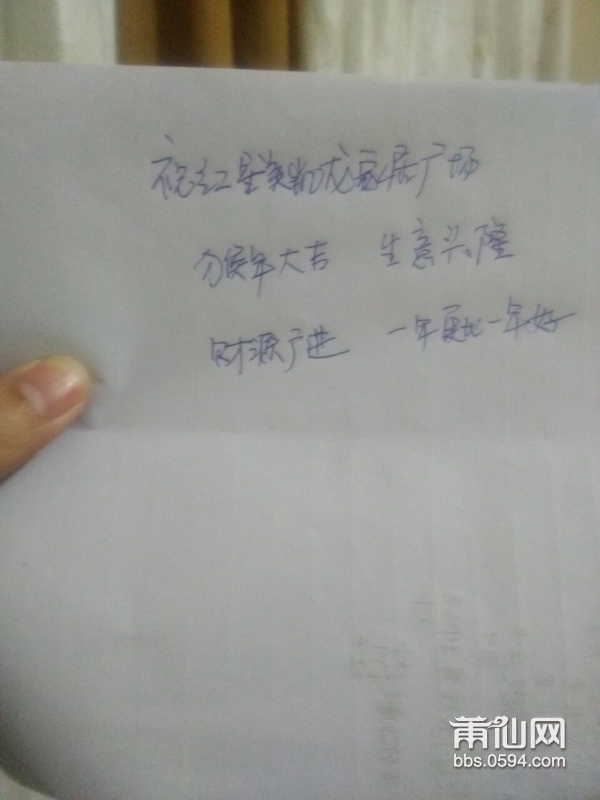 祝红星美凯龙家居广场
猴年大吉 生意兴隆
财源广进 一年更比一年好
莆仙网
bbs.0594.com